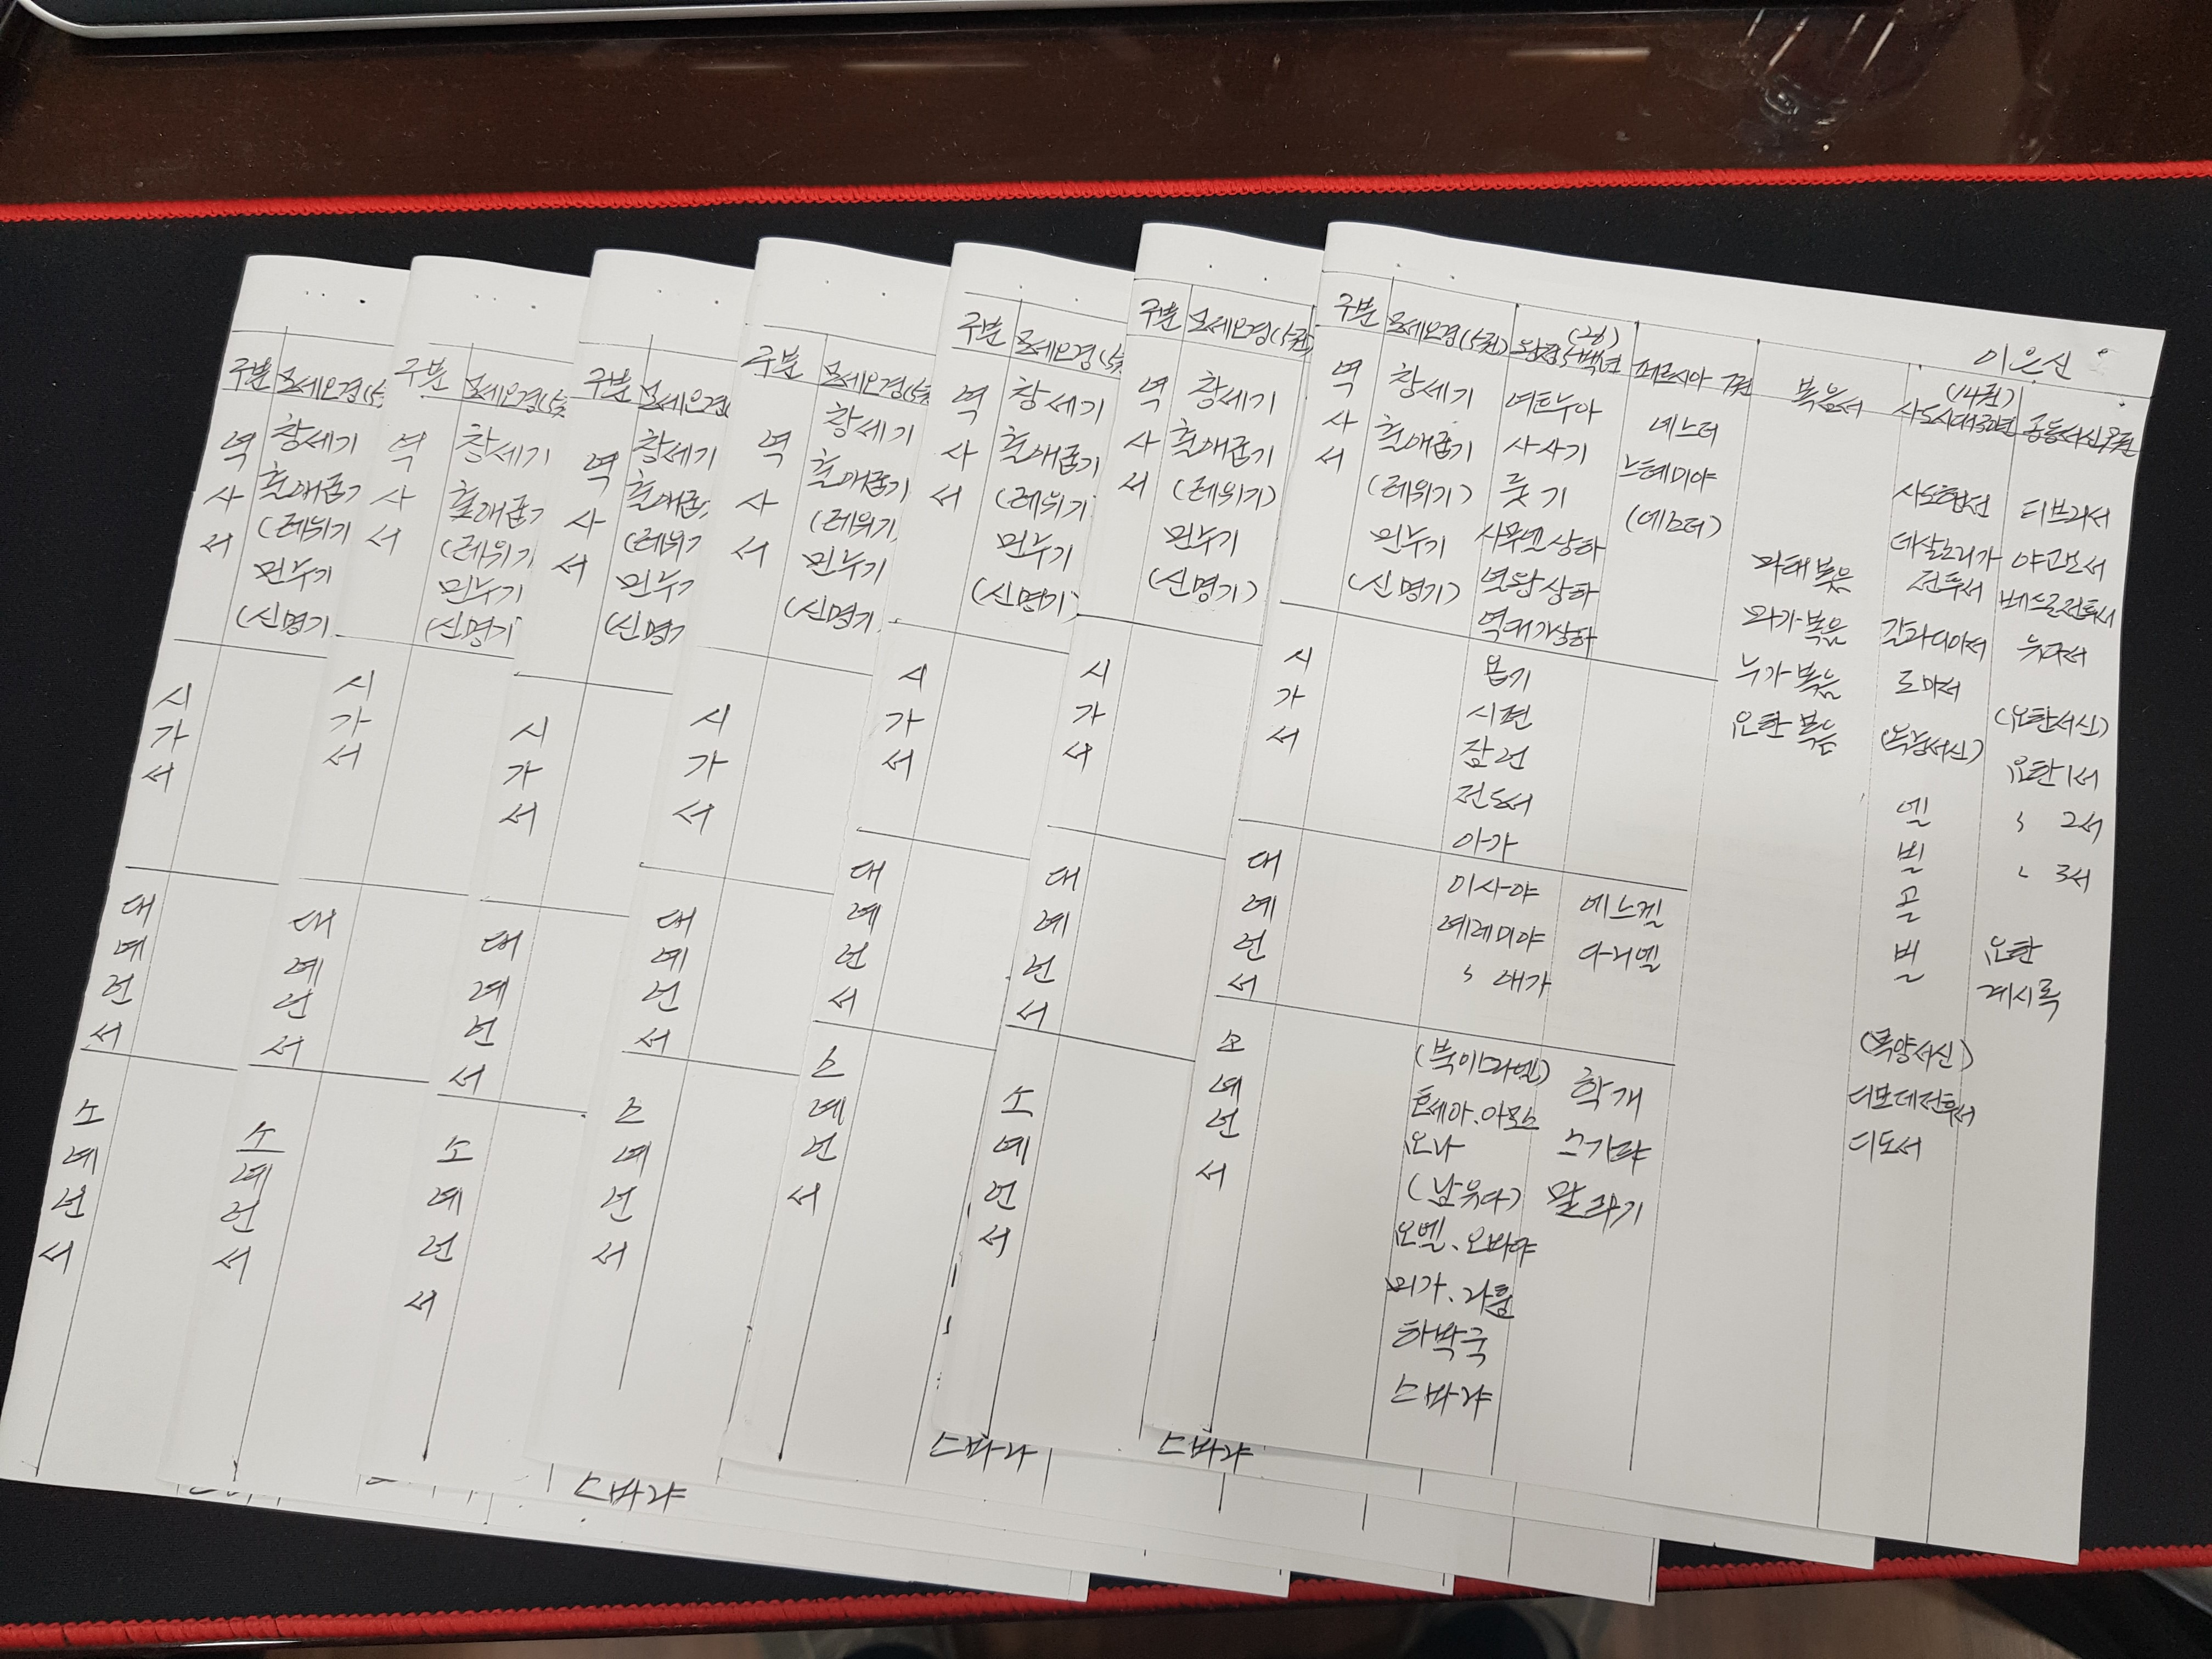 이은신
구분 모세오경(5권) 왕정 5백년 페르시아 7권 복음서 (14권) 공동서신 9권
역사서
창세기
출애굽기
(레위기)
민수기
(신명기)
여호수아
사사기
룻기
사무엘상하
열왕상하
역대기상하
에스더
느헤미야
(에스더)
마태복음
마가복음
누가복음
요한복음
사도행전
데살로니가
전후서
갈라디아서
로마서
(옥중서신)
엡
빌
골
빌
(목양서신)
디모데전후서
디도서
히브리서
야고보서
베드로전후서
유다서
(요한서신)
요한1서
〃 2서
〃 3서
요한
계시록
시가서
욥기
시편
잠언
전도서
아가
대예언서
이사야
예레미야
〃 애가
에스겔
다니엘
소예언서
(북이스라엘)
호세아.아모스
요나
(남유다)
요엘.오바댜
미가.나훔
하박국
스바냐
학개
스가랴
말라기
구분 모세오경(5권)
역사서
창세기
출애굽기
(레위기)
민수기
(신명기)
시가서
대예언서
소예언서
스바냐
구분 모세오경(5권
역사서
창세기
출애굽기
(레위기
민수기
(신명기)
시가서
대예언서
소예언서
스바냐
구분 모세오경(5권
역사서
창세기
출애굽기
(레위기
민수기
(신명기
시가서
대예언서
소예언서
구분 모세오경
역사서
창세기
출애굽
(레위기
민수기
(신명기
시가서
대예언서
소예언서
스바냐
구분 모세오경(5권
역사서
창세기
출애굽기
(레위기
민수기
(신명기
시가서
대예언서
소예언서
구분 모세오경(5
역사서
창세기
출애굽기
(레위기
민수기
(신명기
시가서
대예언서
소예언서